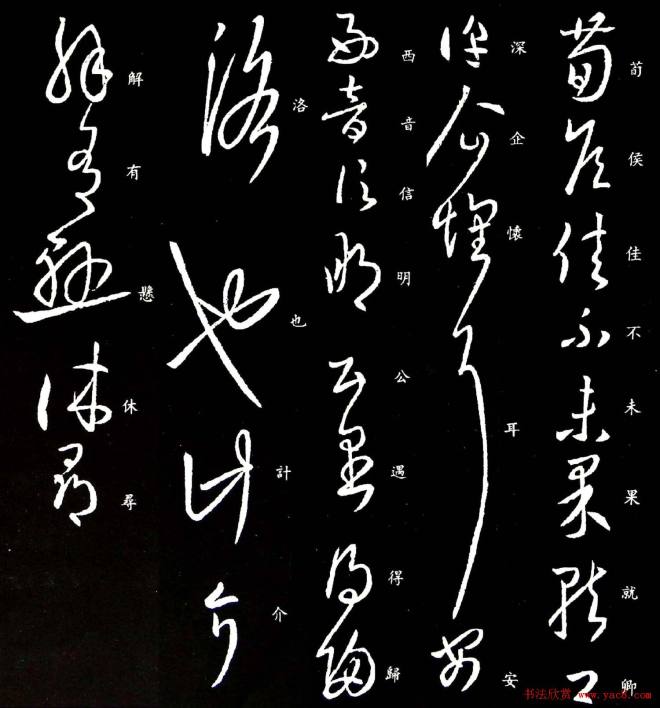 荀侯佳不未果就卿
深企懷耳安
西音信明公遇得歸
洛也計介
解有懸休尋
书法欣赏 www.yac8.com